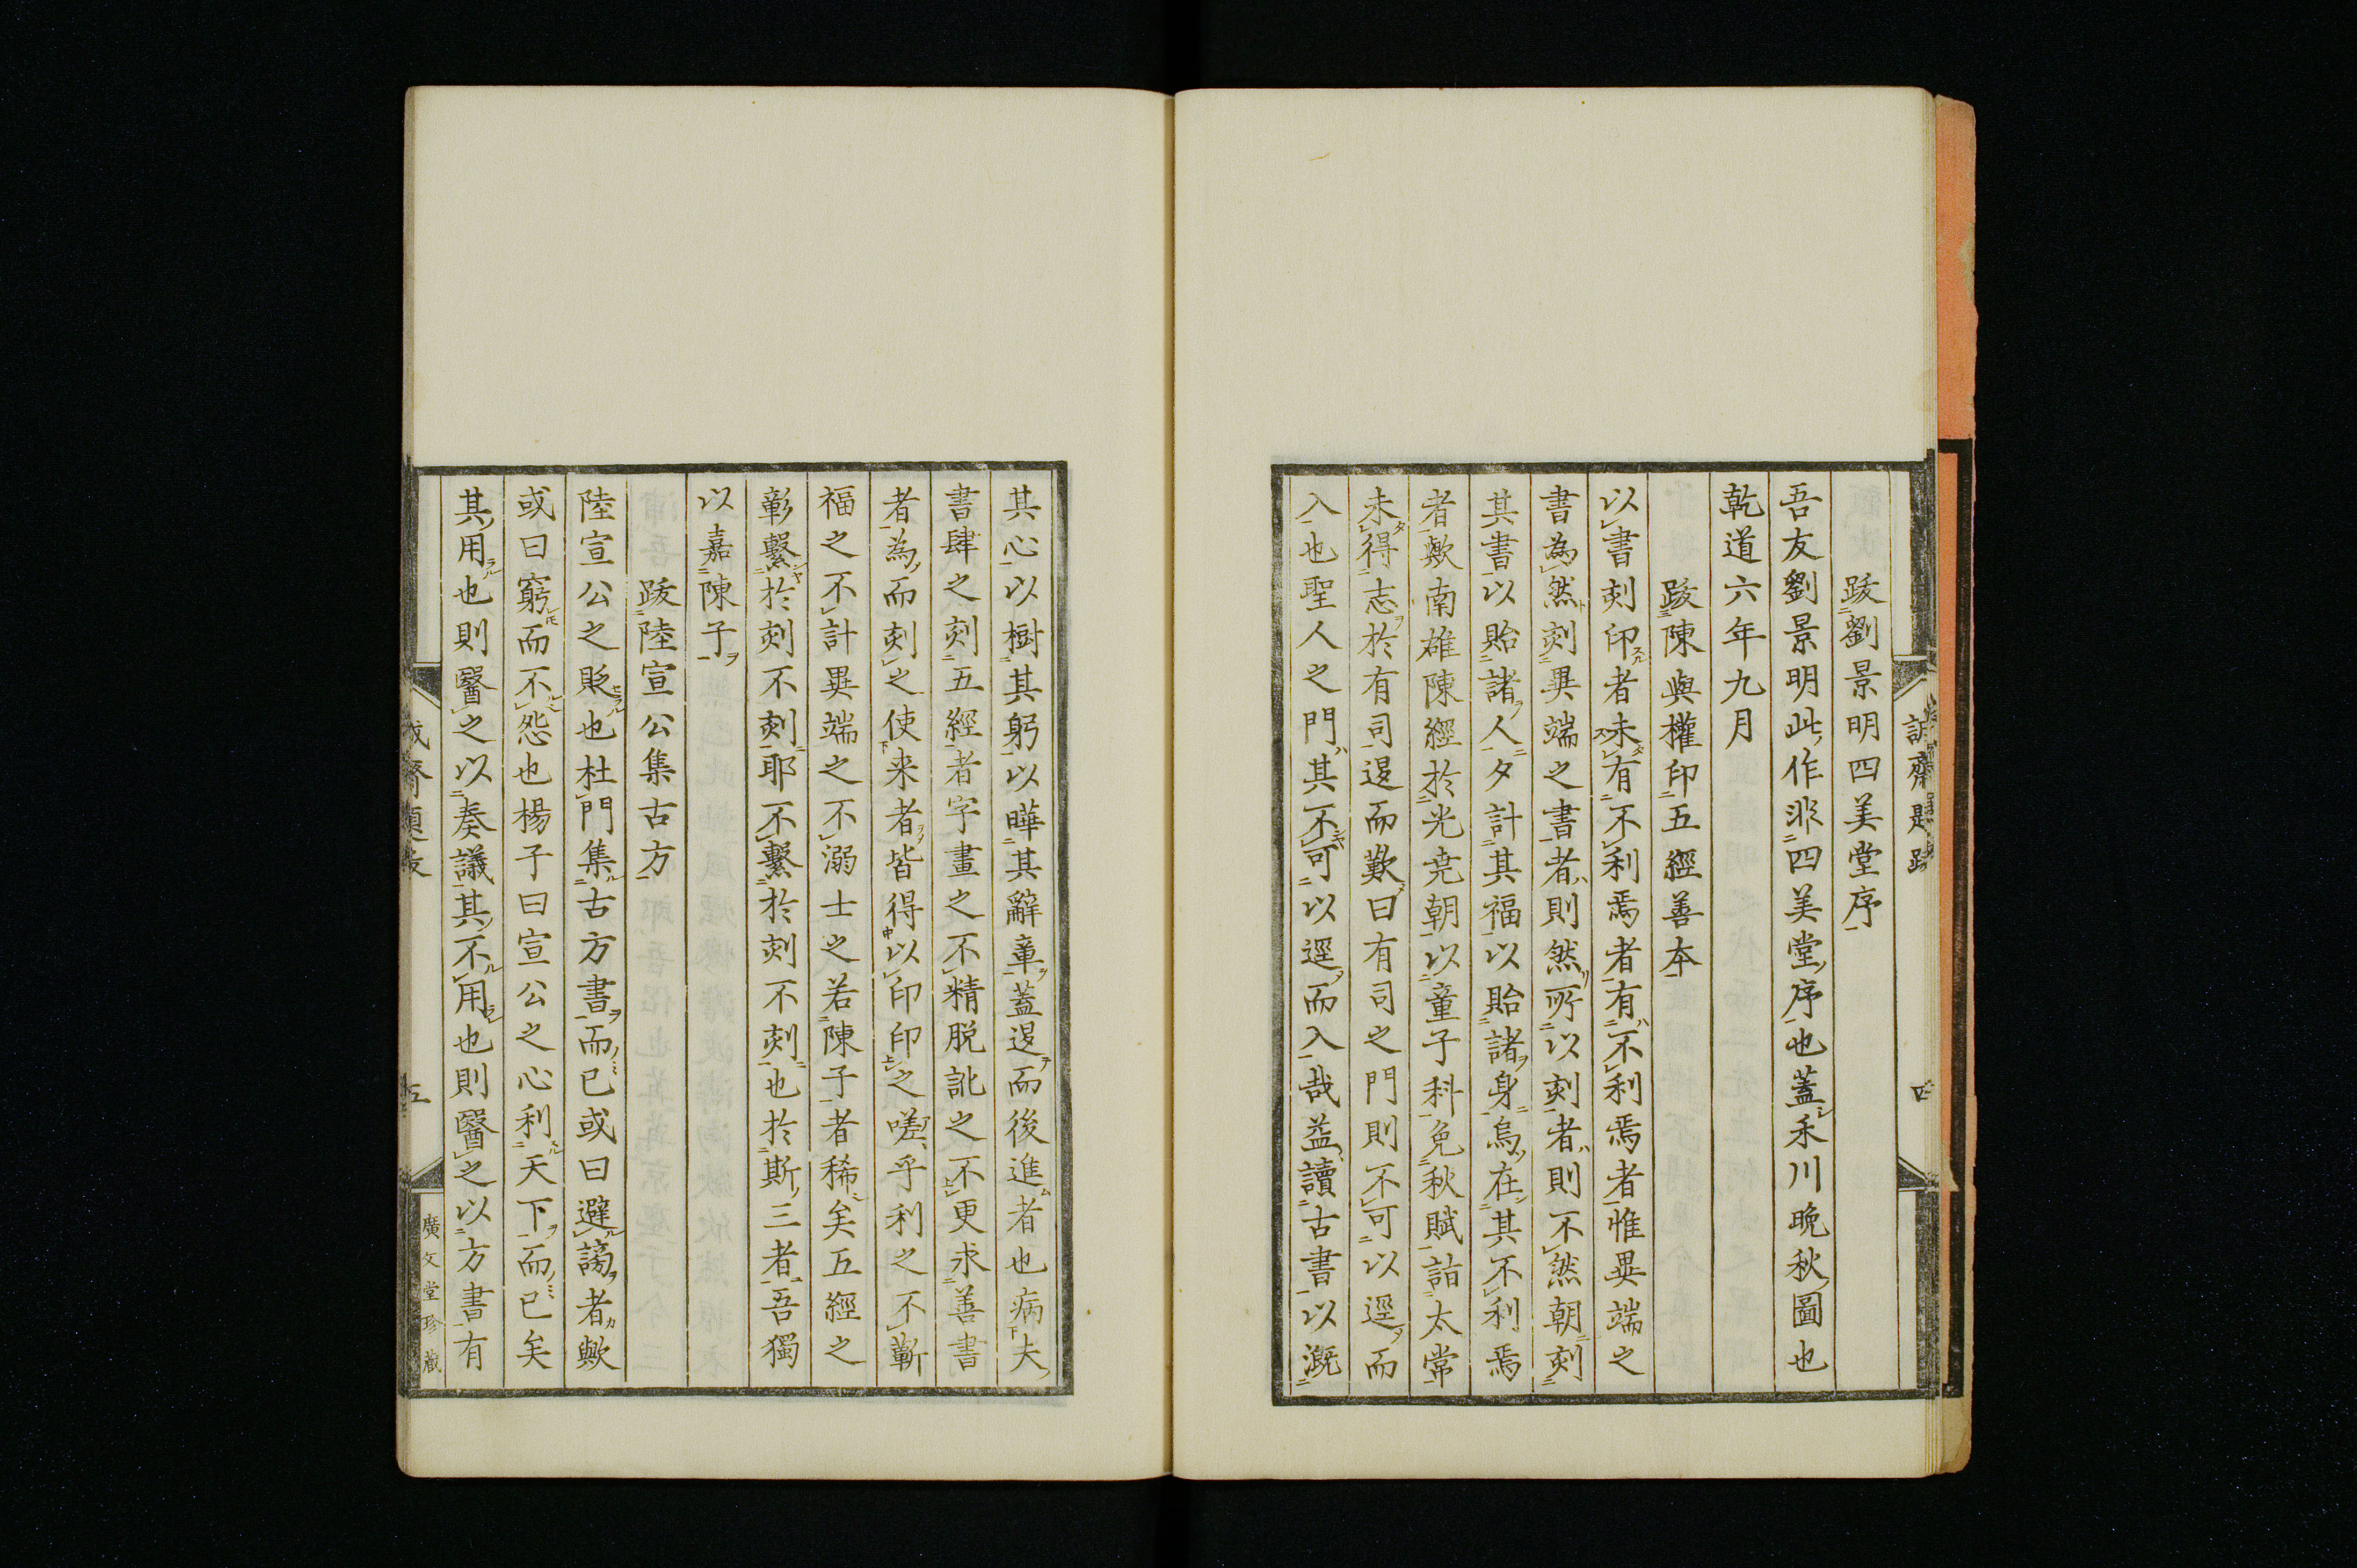 跋劉景明四美堂序
吾友劉景明此作非四美堂序也蓋禾川晚秋圖也
乾道六年九月
跋陳與權印五經善本
以書刻印者未有不利焉者有不利焉者惟異端之
書為然刻異端之書者則然所以刻者則不然朝刻
其書以貽諸人夕計其福以貽諸身烏在其不利焉
者歟南雄陳經於光堯朝以童子科免秋賦詣太常
未得志於有司退而歎曰有司之門則不可以逕而
入也聖人之門其不可以逕而入哉益讀古書以溉
其心以樹其躬以曄其辭章蓋退而後進者也病夫
書肆之刻五經者字畫之不精脫訛之不更求善書
者為而刻之使来者皆得以印印之嗟乎利之不蘄
福之不計異端之不溺士之若陳子者稀矣五經之
彰繫於刻不刻耶不繫於刻不刻也於斯三者吾獨
以嘉陳子
跋陸宣公集古方
陸宣公之貶也杜門集古方書而已或曰避謗者歟
或曰窮而不怨也楊子曰宣公之心利天下而已矣
其用也則醫之以奏議其不用也則醫之以方書有
誠齋題跋
四
五
廣文堂珍藏